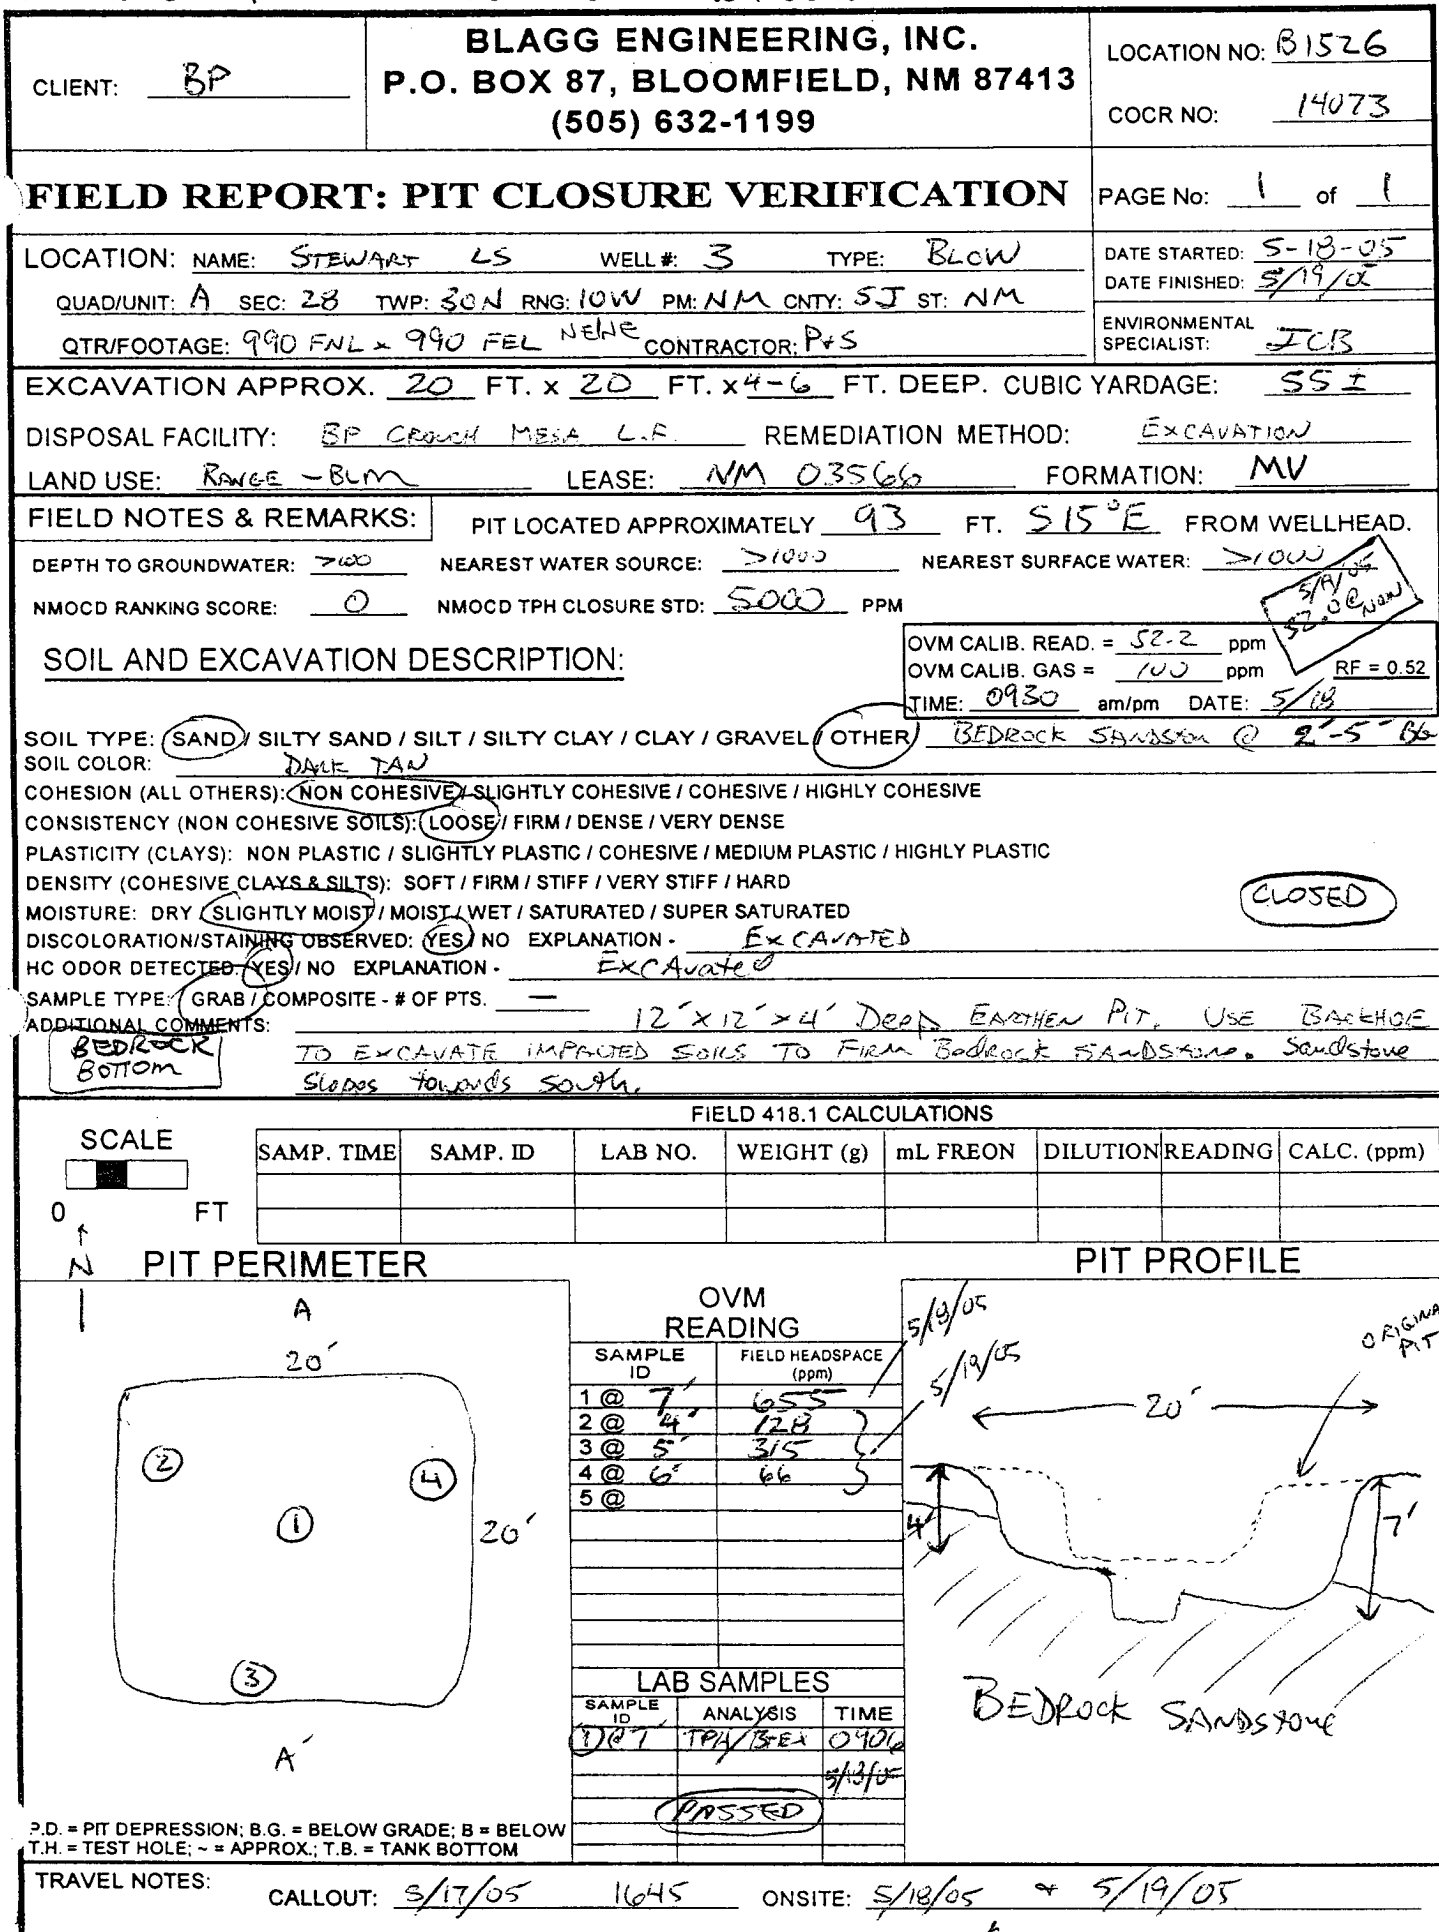 CLIENT: BP
BLAGG ENGINEERING, INC.
P.O. BOX 87, BLOOMFIELD, NM 87413
(505) 632-1199
LOCATION NO: B1526
COCR NO: 14073
FIELD REPORT: PIT CLOSURE VERIFICATION
PAGE No: 1 of 1
LOCATION: NAME: STEWART LS WELL #: 3 TYPE: BLOW
QUAD/UNIT: A SEC: 28 TWP: 30N RNG: 10W PM: NM CNTY: SJ ST: NM
QTR/FOOTAGE: 990 FNL x 990 FEL NE/NE CONTRACTOR: P+S
DATE STARTED: 5-18-05
DATE FINISHED: 5/19/05
ENVIRONMENTAL
SPECIALIST: JCB
EXCAVATION APPROX. 20 FT. x 20 FT. x 4-6 FT. DEEP. CUBIC YARDAGE: 55 ±
DISPOSAL FACILITY: BP CROUCH MESA L.F. REMEDIATION METHOD: EXCAVATION
LAND USE: RANGE - BLM LEASE: NM 03566 FORMATION: MV
FIELD NOTES & REMARKS: PIT LOCATED APPROXIMATELY 93 FT. S15°E FROM WELLHEAD.
DEPTH TO GROUNDWATER: >100 NEAREST WATER SOURCE: >1000 NEAREST SURFACE WATER: >1000
NMOCD RANKING SCORE: 0 NMOCD TPH CLOSURE STD: 5000 PPM
5/19/05
52.0 @ NOON
SOIL AND EXCAVATION DESCRIPTION:
OVM CALIB. READ. = 52.2 ppm
OVM CALIB. GAS = 100 ppm RF = 0.52
TIME: 0930 am/pm DATE: 5/18
SOIL TYPE: SAND / SILTY SAND / SILT / SILTY CLAY / CLAY / GRAVEL / OTHER BEDROCK SANDSTON @ 2'-5' BG
SOIL COLOR: DARK TAN
COHESION (ALL OTHERS): NON COHESIVE / SLIGHTLY COHESIVE / COHESIVE / HIGHLY COHESIVE
CONSISTENCY (NON COHESIVE SOILS): LOOSE / FIRM / DENSE / VERY DENSE
PLASTICITY (CLAYS): NON PLASTIC / SLIGHTLY PLASTIC / COHESIVE / MEDIUM PLASTIC / HIGHLY PLASTIC
DENSITY (COHESIVE CLAYS & SILTS): SOFT / FIRM / STIFF / VERY STIFF / HARD
MOISTURE: DRY / SLIGHTLY MOIST / MOIST / WET / SATURATED / SUPER SATURATED
CLOSED
DISCOLORATION/STAINING OBSERVED: YES / NO EXPLANATION - EXCAVATED
HC ODOR DETECTED: YES / NO EXPLANATION - EXCAvated
SAMPLE TYPE: GRAB / COMPOSITE - # OF PTS. —
ADDITIONAL COMMENTS: 12' x 12' x 4' Deep EARTHEN PIT. USE BACKHOE
BEDROCK
BOTTOM
TO EXCAVATE IMPACTED SOILS TO FIRM Bedrock SANDSTONE. Sandstone
Slopes towards South.
FIELD 418.1 CALCULATIONS
SCALE
0 FT
SAMP. TIME SAMP. ID LAB NO. WEIGHT (g) mL FREON DILUTION READING CALC. (ppm)
N
PIT PERIMETER
A
20'
2
4
1
20'
3
A'
OVM
READING
SAMPLE ID FIELD HEADSPACE (ppm)
1 @ 7' 655
2 @ 4' 128
3 @ 5' 315
4 @ 6' 66
5 @
5/18/05
5/19/05
LAB SAMPLES
SAMPLE ID ANALYSIS TIME
1 @ 7' TPH/BTEX 0906
PASSED
PIT PROFILE
ORIGINA
PIT
20'
4'
7'
BEDROCK SANDSTONE
P.D. = PIT DEPRESSION; B.G. = BELOW GRADE; B = BELOW
T.H. = TEST HOLE; ~ = APPROX.; T.B. = TANK BOTTOM
TRAVEL NOTES: CALLOUT: 5/17/05 1645 ONSITE: 5/18/05 + 5/19/05